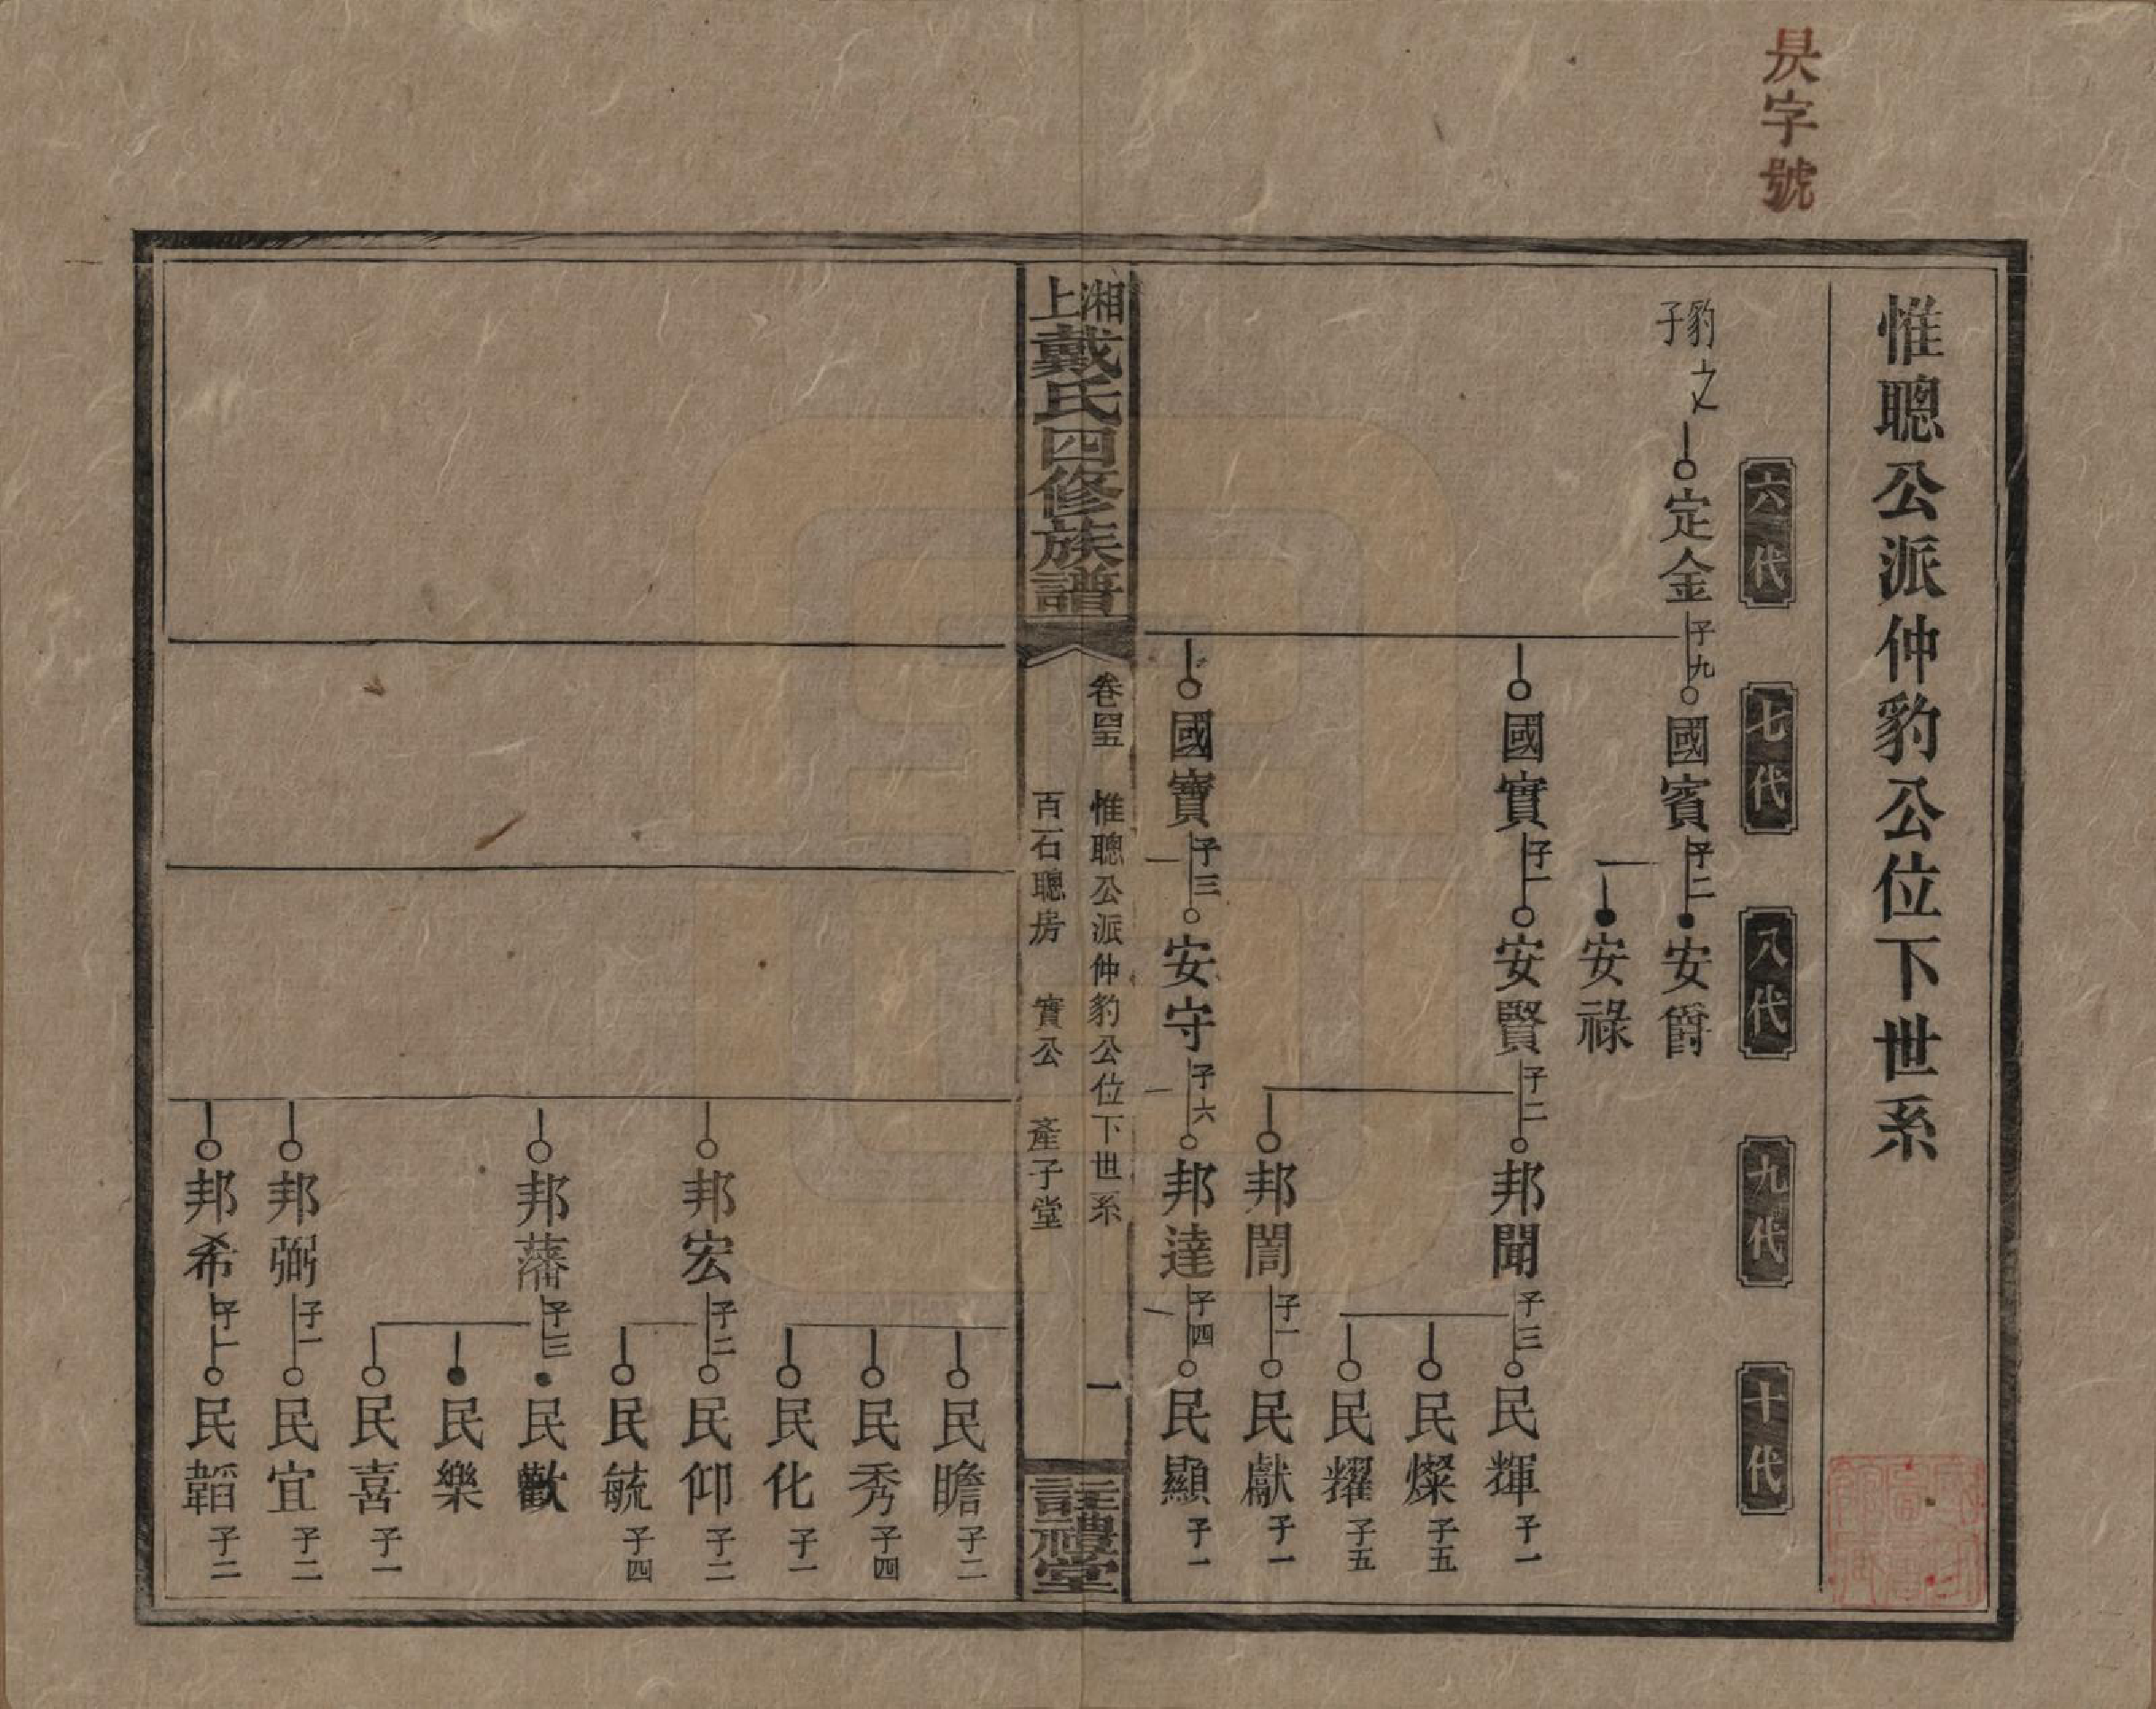 昃字號
惟聰公派仲豹公位下世系
六代
七代
八代
九代
十代
豹之子
定金 子九
國賓 子二
安爵
安祿
國實 子一
安賢 子二
邦聞 子三
民輝 子一
民燦 子五
民耀 子五
邦誾 子一
民獻 子一
國寶 子三
安守 子六
邦達 子四
民顯 子一
湘上戴氏四修族譜
卷四五
惟聰公派仲豹公位下世系
一
百石聰房 實公 產子堂
註禮堂
民瞻 子二
民秀 子四
民化 子一
邦宏 子二
民仰 子二
民毓 子四
邦藩 子三
民歡
民樂
民喜 子一
邦弼 子一
民宜 子二
邦希 子一
民韜 子二